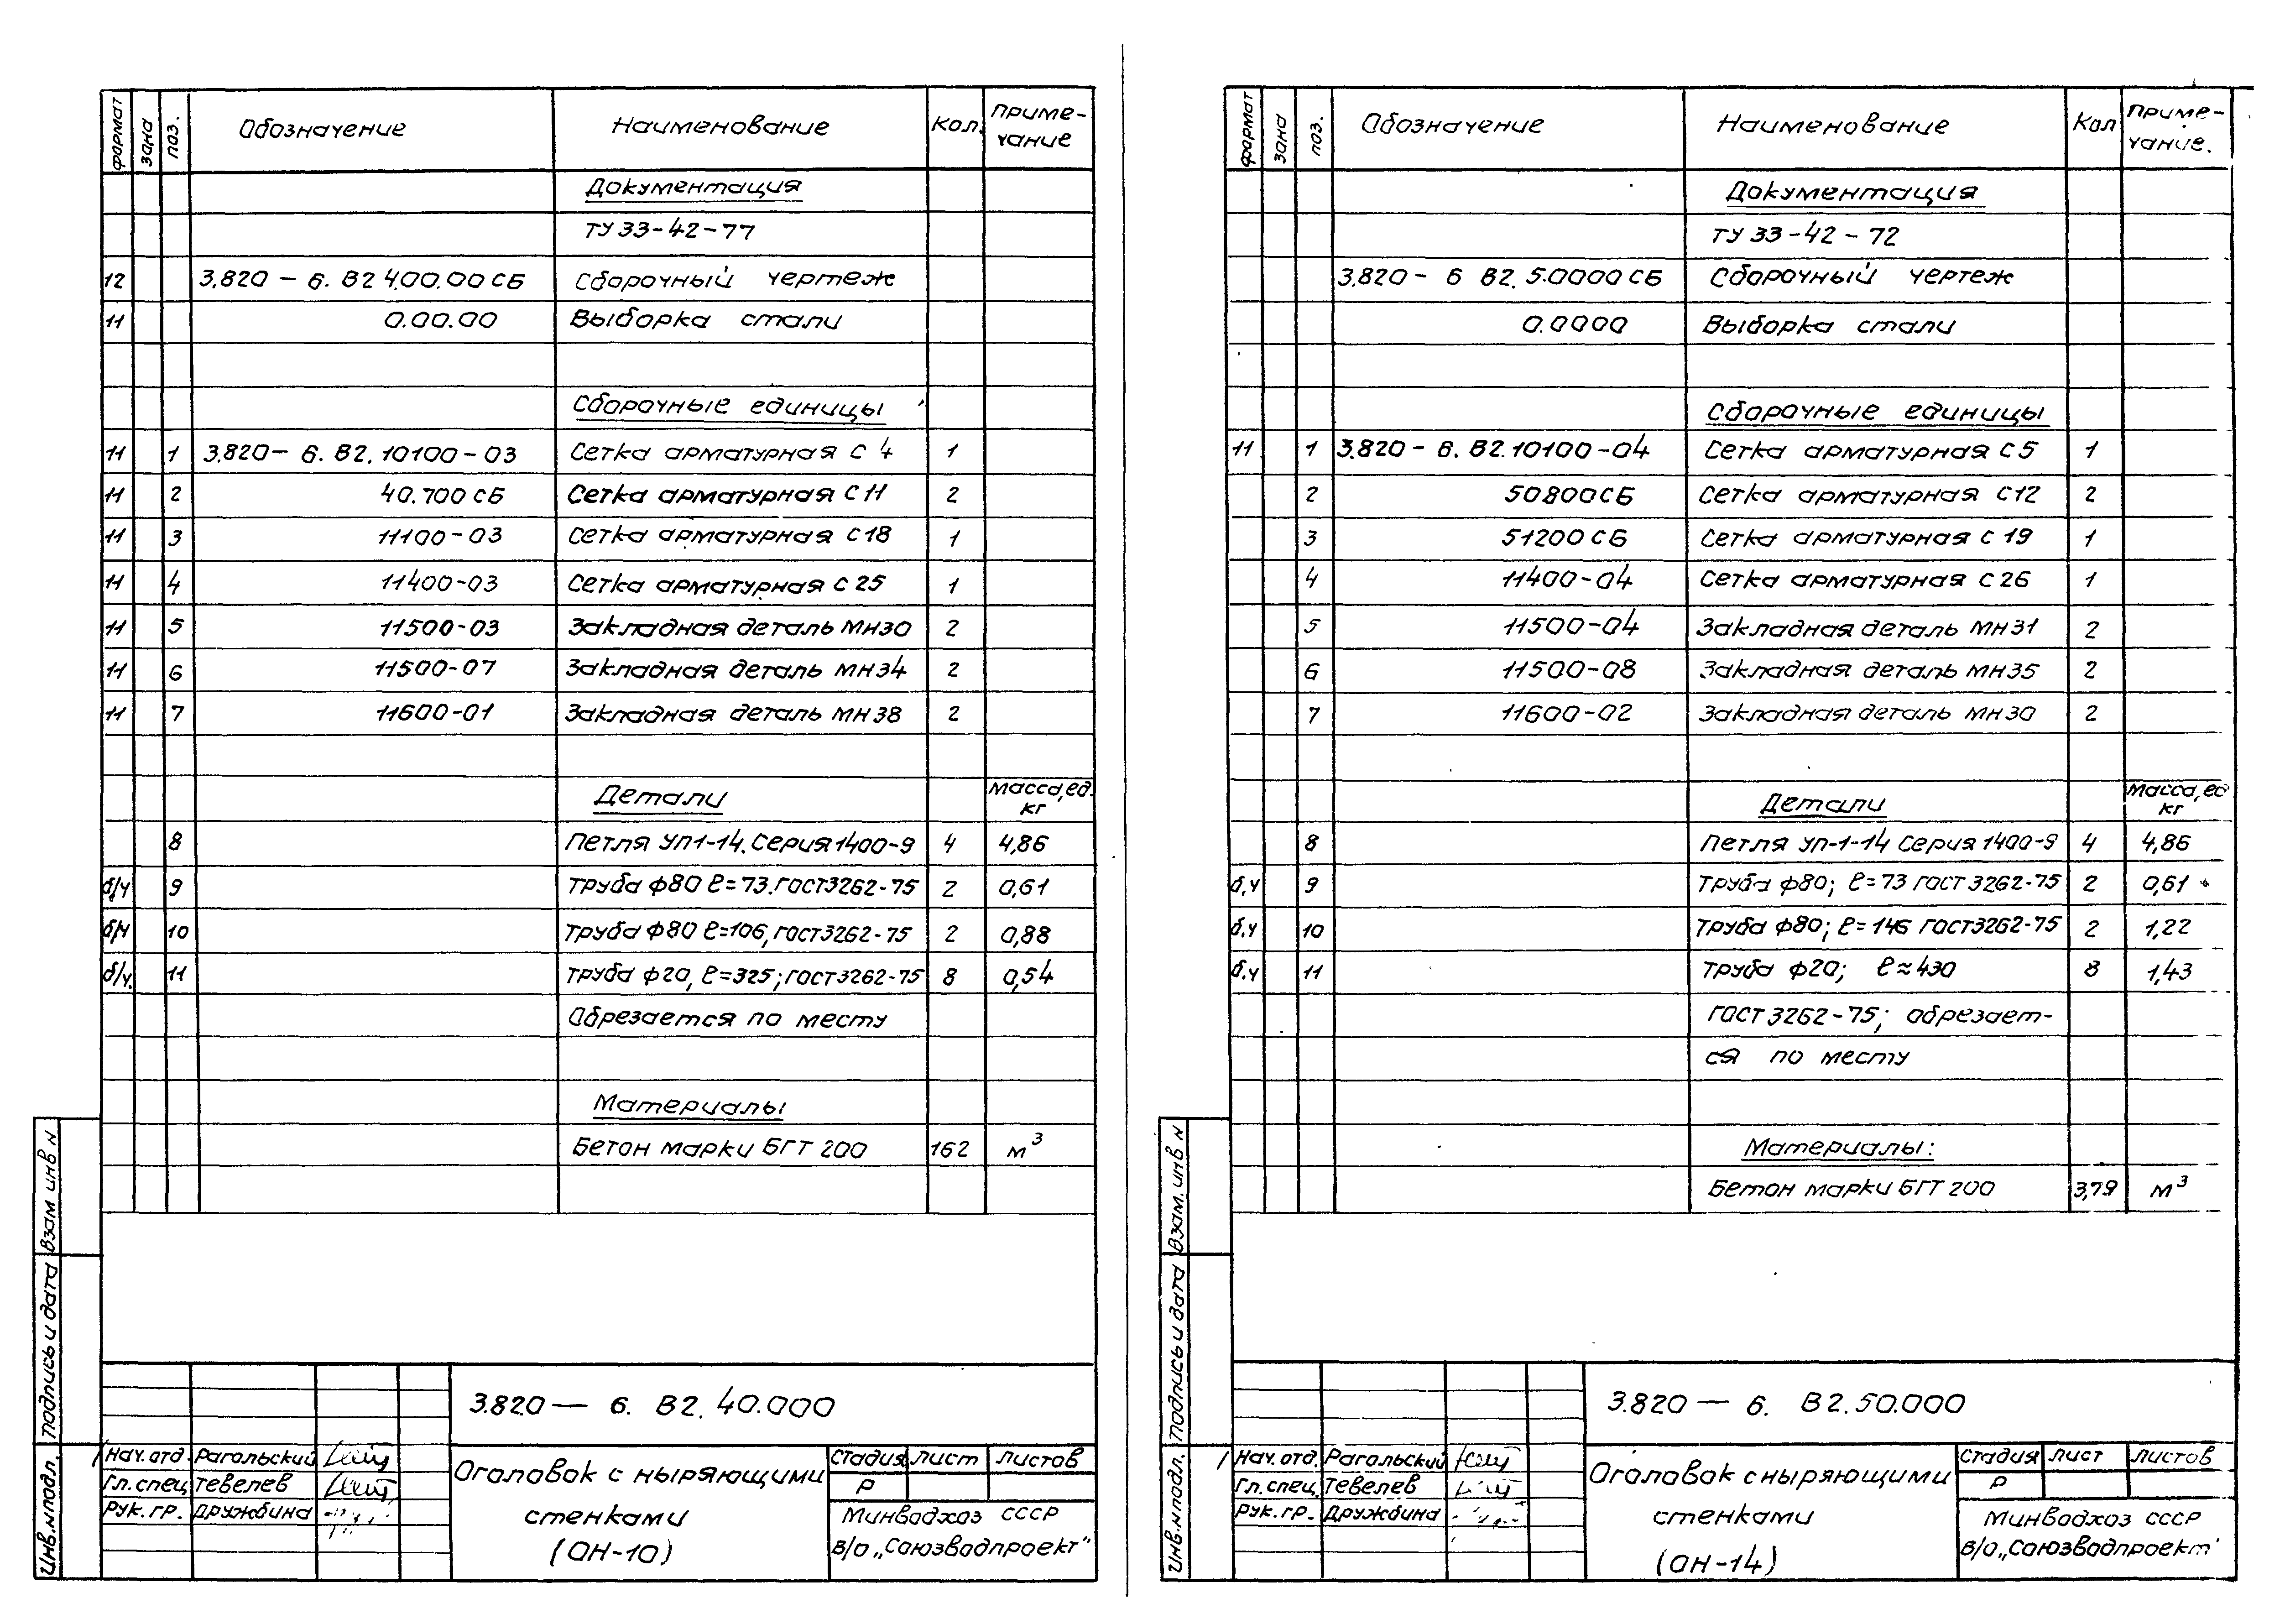 формат зона поз. Обозначение Наименование Кол. Приме-
чание
Документация
ТУ 33-42-77
12 3.820 - 6. В2 4.00.00 СБ Сборочный чертеж
11 0.00.00 Выборка стали
Сборочные единицы
11 1 3.820 - 6. В2. 10100-03 Сетка арматурная С 4 1
11 2 40.700 СБ Сетка арматурная С 11 2
11 3 11100-03 Сетка арматурная С 18 1
11 4 11400-03 Сетка арматурная С 25 1
11 5 11500-03 Закладная деталь МН30 2
11 6 11500-07 Закладная деталь МН34 2
11 7 11600-01 Закладная деталь МН38 2
Детали Масса, ед.
кг
8 Петля УП1-14. Серия 1400-9 4 4,86
б/ч 9 Труба ф80 ℓ=73. ГОСТ 3262-75 2 0,61
б/ч 10 Труба ф80 ℓ=106, ГОСТ 3262-75 2 0,88
б/ч. 11 Труба ф20, ℓ=325; ГОСТ 3262-75 8 0,54
Обрезается по месту
Материалы
Бетон марки БГТ 200 162 м³
Взам инв N
Подпись и дата
Инв.N подл.
3.820 — 6. В2. 40.000
Нач. отд. Рагольский
Гл. спец. Тевелев
Рук. гр. Дружбина
Оголовок с ныряющими
стенками
(ОН-10)
Стадия Лист Листов
Р
Минводхоз СССР
В/О „Союзводпроект"
формат зона поз. Обозначение Наименование Кол Приме-
чание.
Документация
ТУ 33-42-72
3.820 - 6 В2. 5.0000 СБ Сборочный чертеж
0.0000 Выборка стали
Сборочные единицы
11 1 3.820 - 6. В2. 10100-04 Сетка арматурная С 5 1
2 50800 СБ Сетка арматурная С12 2
3 51200 СБ Сетка арматурная С 19 1
4 11400-04 Сетка арматурная С 26 1
5 11500-04 Закладная деталь МН31 2
6 11500-08 Закладная деталь МН35 2
7 11600-02 Закладная деталь МН30 2
Детали Масса, ед
кг
8 Петля УП-1-14 Серия 1400-9 4 4,86
б.ч 9 Труба ф80; ℓ=73 ГОСТ 3262-75 2 0,61
б.ч 10 Труба ф80; ℓ=146 ГОСТ 3262-75 2 1,22
б.ч 11 Труба ф20; ℓ≈430 8 1,43
ГОСТ 3262-75; обрезает-
ся по месту
Материалы:
Бетон марки БГТ 200 3,79 м³
Взам. инв N
Подпись и дата
Инв.N подл.
3.820 — 6. В2. 50.000
Нач. отд. Рагольский
Гл. спец. Тевелев
Рук. гр. Дружбина
Оголовок с ныряющими
стенками
(ОН-14)
Стадия Лист Листов
Р
Минводхоз СССР
В/О „Союзводпроект"